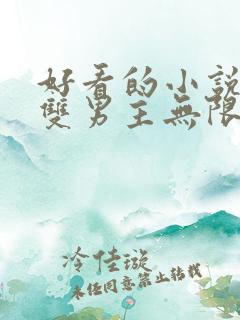 好看的小說
雙男主無限
冷佳璇
未經同意禁止轉載